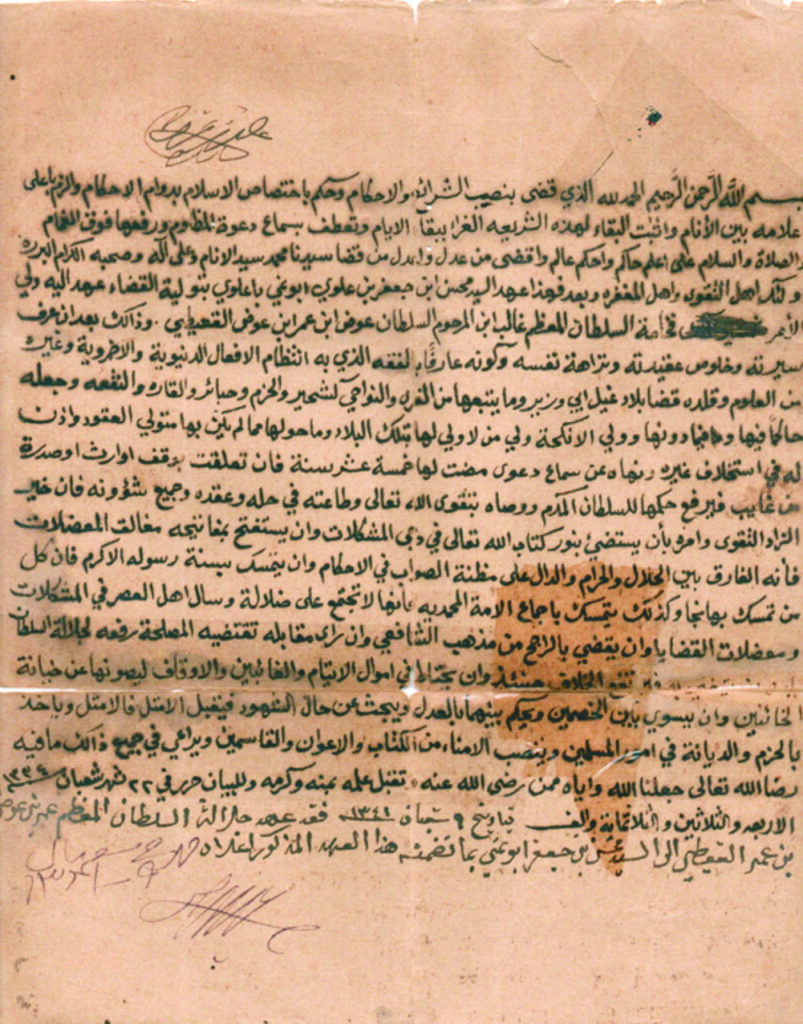 بسم اللَّه الرَّحمن الرَّحيم الحمد لله الذي قضى بنصيب الشرائع والاحكام وحكم باختصاص الاسلام بدوام الاحكام والزم باعلى
علامه بين الأنام واثبت البقاء لهذه الشريعه الغرا ببقآ الايام وتعطف بسماع دعوة المظلوم ورفعها فوق الغمام
والصلاة والسلام على اعلم حاكم واحكم عالم واقضى من عدل واعدل من قضا سيدنا محمد سيد الانام وعلى آله وصحبه الكرام البرره
اهل التقوى واهل المغفره وبعد فهذا عهد السيد محسن ابن جعفر بن علوي ابونمي باعلوي بتولية القضاء عهد اليه ولي
الأمر السلطان المعظم غالب ابن المرحوم السلطان عوض ابن عمر ابن عوض القعيطي وذالك بعد ان عرف
سيرته وخلوص عقيدته ونزاهة نفسه وكونه عارفًا بالفقه الذي به انتظام الافعال الدنيوية والاخروية وغيره
من العلوم وقلده قضا بلاد غيل ابي وزير وما يتبعها من القرى والنواحي كشحير والحزم وحباير والقاره والنقعه وجعله
حاكمًا فيها دونها وولي الانكحة ولي من لا ولي لها بتلك البلاد وما حولها مما لم يكن بها متولي العقود واذن
له في استخلاف غيره عن سماع دعوى مضت لها خمسة عشر سنة فان تعلقت بوقف او ارث او صدرة
من غايب فيرفع حكمها للسلطان المكرم ووصاه بتقوى الله تعالى وطاعته في حله وعقده وجميع شؤونه فان خير
الزاد التقوى وامره بأن يستضئ بنور كتاب الله تعالى في دجى المشكلات وان يستفتح بمفاتيحه مغالق المعضلات
فأنه الفارق بين الحلال والحرام والدال على مظنة الصواب في الاحكام وان يتمسك بسنة رسوله الاكرم فان كل
من تمسك بها نجا وكذلك يتمسك باجماع الامة المحمديه فأنها لا تجتمع على ضلالة وسال اهل العصر في المشكلات
ومعضلات القضايا وان يقضي بالراجح من مذهب الشافعي وان راى مقابله تقتضيه المصلحة رفعه لجلالة السلطان
الخلاف حينئذ وان يحتاط في اموال الايتام والغائبين والاوقاف ليصونها عن خيانة
الخائنين وان يسوي بين الخصمين ويحكم بينهما بالعدل ويبحث عن حال الشهود فيقبل الامثل فالامثل وياخذ
بالحزم والديانة في امور المسلمين وينصب الامناء من الكتاب والاعوان والقاسمين ويراعي في جميع ذالك مافيه
رضا الله تعالى جعلنا الله واياه ممن رضى الله عنه وتقبل عمله بمنه وكرمه وللبيان حرر في ٢٢ شهر شعبان ١٣٣٤
الاربعه والثلاثين والثلاثماية والف وبتاريخ ٩ شعبان ١٣٤١ فقد عهد جلالة السلطان المعظم عمر بن عوض
بن عمر القعيطي الى السيد محسن بن جعفر ابونمي بما تضمنه هذا العهد المذكور اعلاه